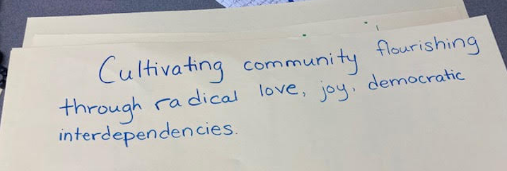 Cultivating community flourishing
through radical love, joy, democratic
interdependencies.